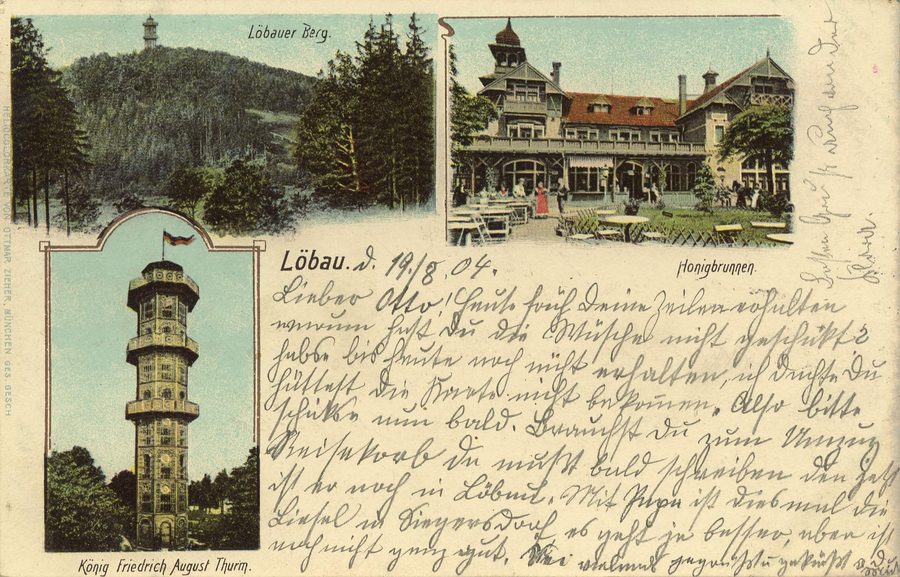 Löbauer Berg.
Honigbrunnen.
König Friedrich August Thurm.
HELIOCOLORKARTE VON OTTMAR ZIEHER, MÜNCHEN GES. GESCH
Löbau. d. 19./8. 04.
Lieber Otto! Heute früh Deine Zeilen erhalten
warum hast Du die Wäsche nicht geschickt?
habe bis heute noch nicht erhalten, ich dachte Du
hättest die Karte nicht bekommen. Also bitte
schicke nun bald. Brauchst Du zum Umzug
Reisekorb du mußt bald schreiben den jetzt
ist er noch in Löbau. Mit Papa ist dies mal die
Liesel in Siegersdorf, es geht ja besser, aber ist
noch nicht ganz gut. Sei vielmals gegrüßt u. geküßt v. D.
Gruß